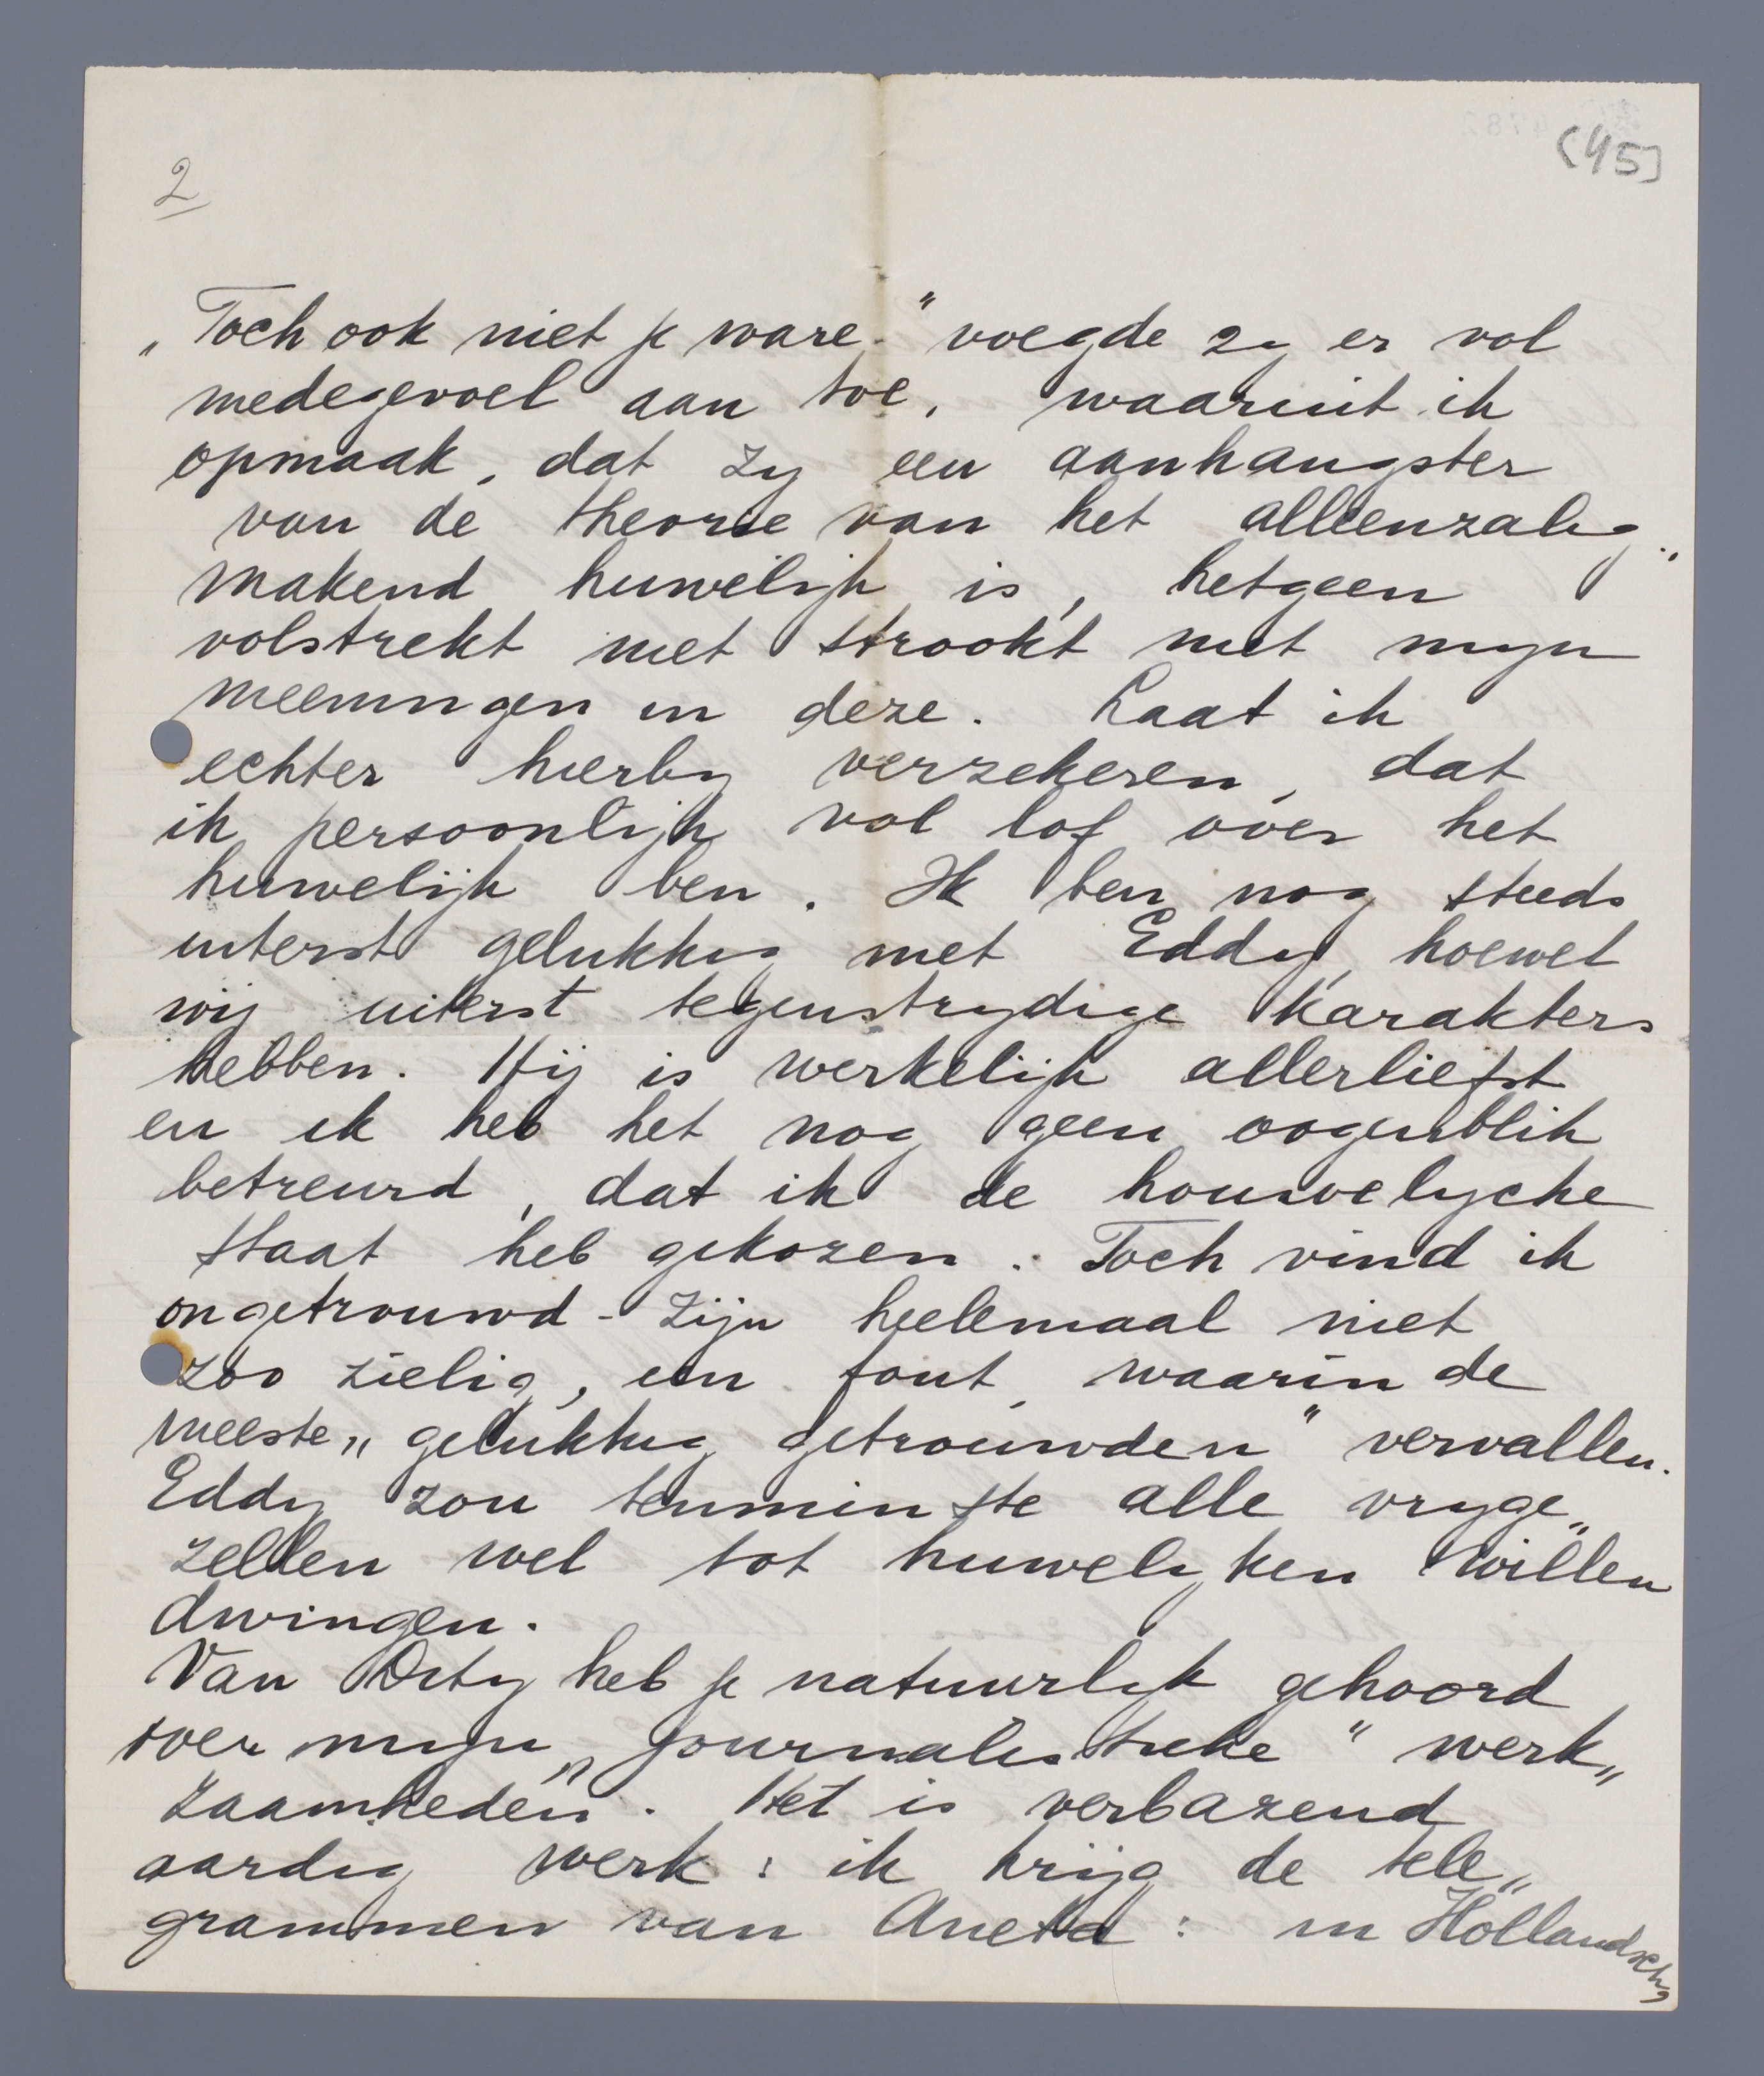 2
(45]
„Toch ook niet je ware." voegde zy er vol
medegevoel aan toe, waaruit ik
opmaak, dat zy een aanhangster
van de theorie van het alleenzalig„
makend huwelijk is, hetgeen
volstrekt niet strookt met myn
meeningen in deze. Laat ik
echter hierby verzekeren, dat
ik persoonlijk vol lof over het
huwelijk ben. Ik ben nog steeds
uiterst gelukkig met Eddy, hoewel
wij uiterst tegenstrydige karakters
hebben. Hij is werkelijk allerliefst
en ik heb het nog geen oogenblik
betreurd, dat ik de houwelycke
staat heb gekozen. Toch vind ik
ongetrouwd-zijn heelemaal niet
zoo zielig, een fout, waarin de
meeste „gelukkig getrouwden" vervallen.
Eddy zou tenminste alle vryge„
zellen wel tot huwelyken willen
dwingen.
Van Orty heb je natuurlyk gehoord
over myn „journalistieke" werk„
zaamheden". Het is verbazend
aardig werk: ik krijg de tele„
grammen van Aneta: in Hollandsch